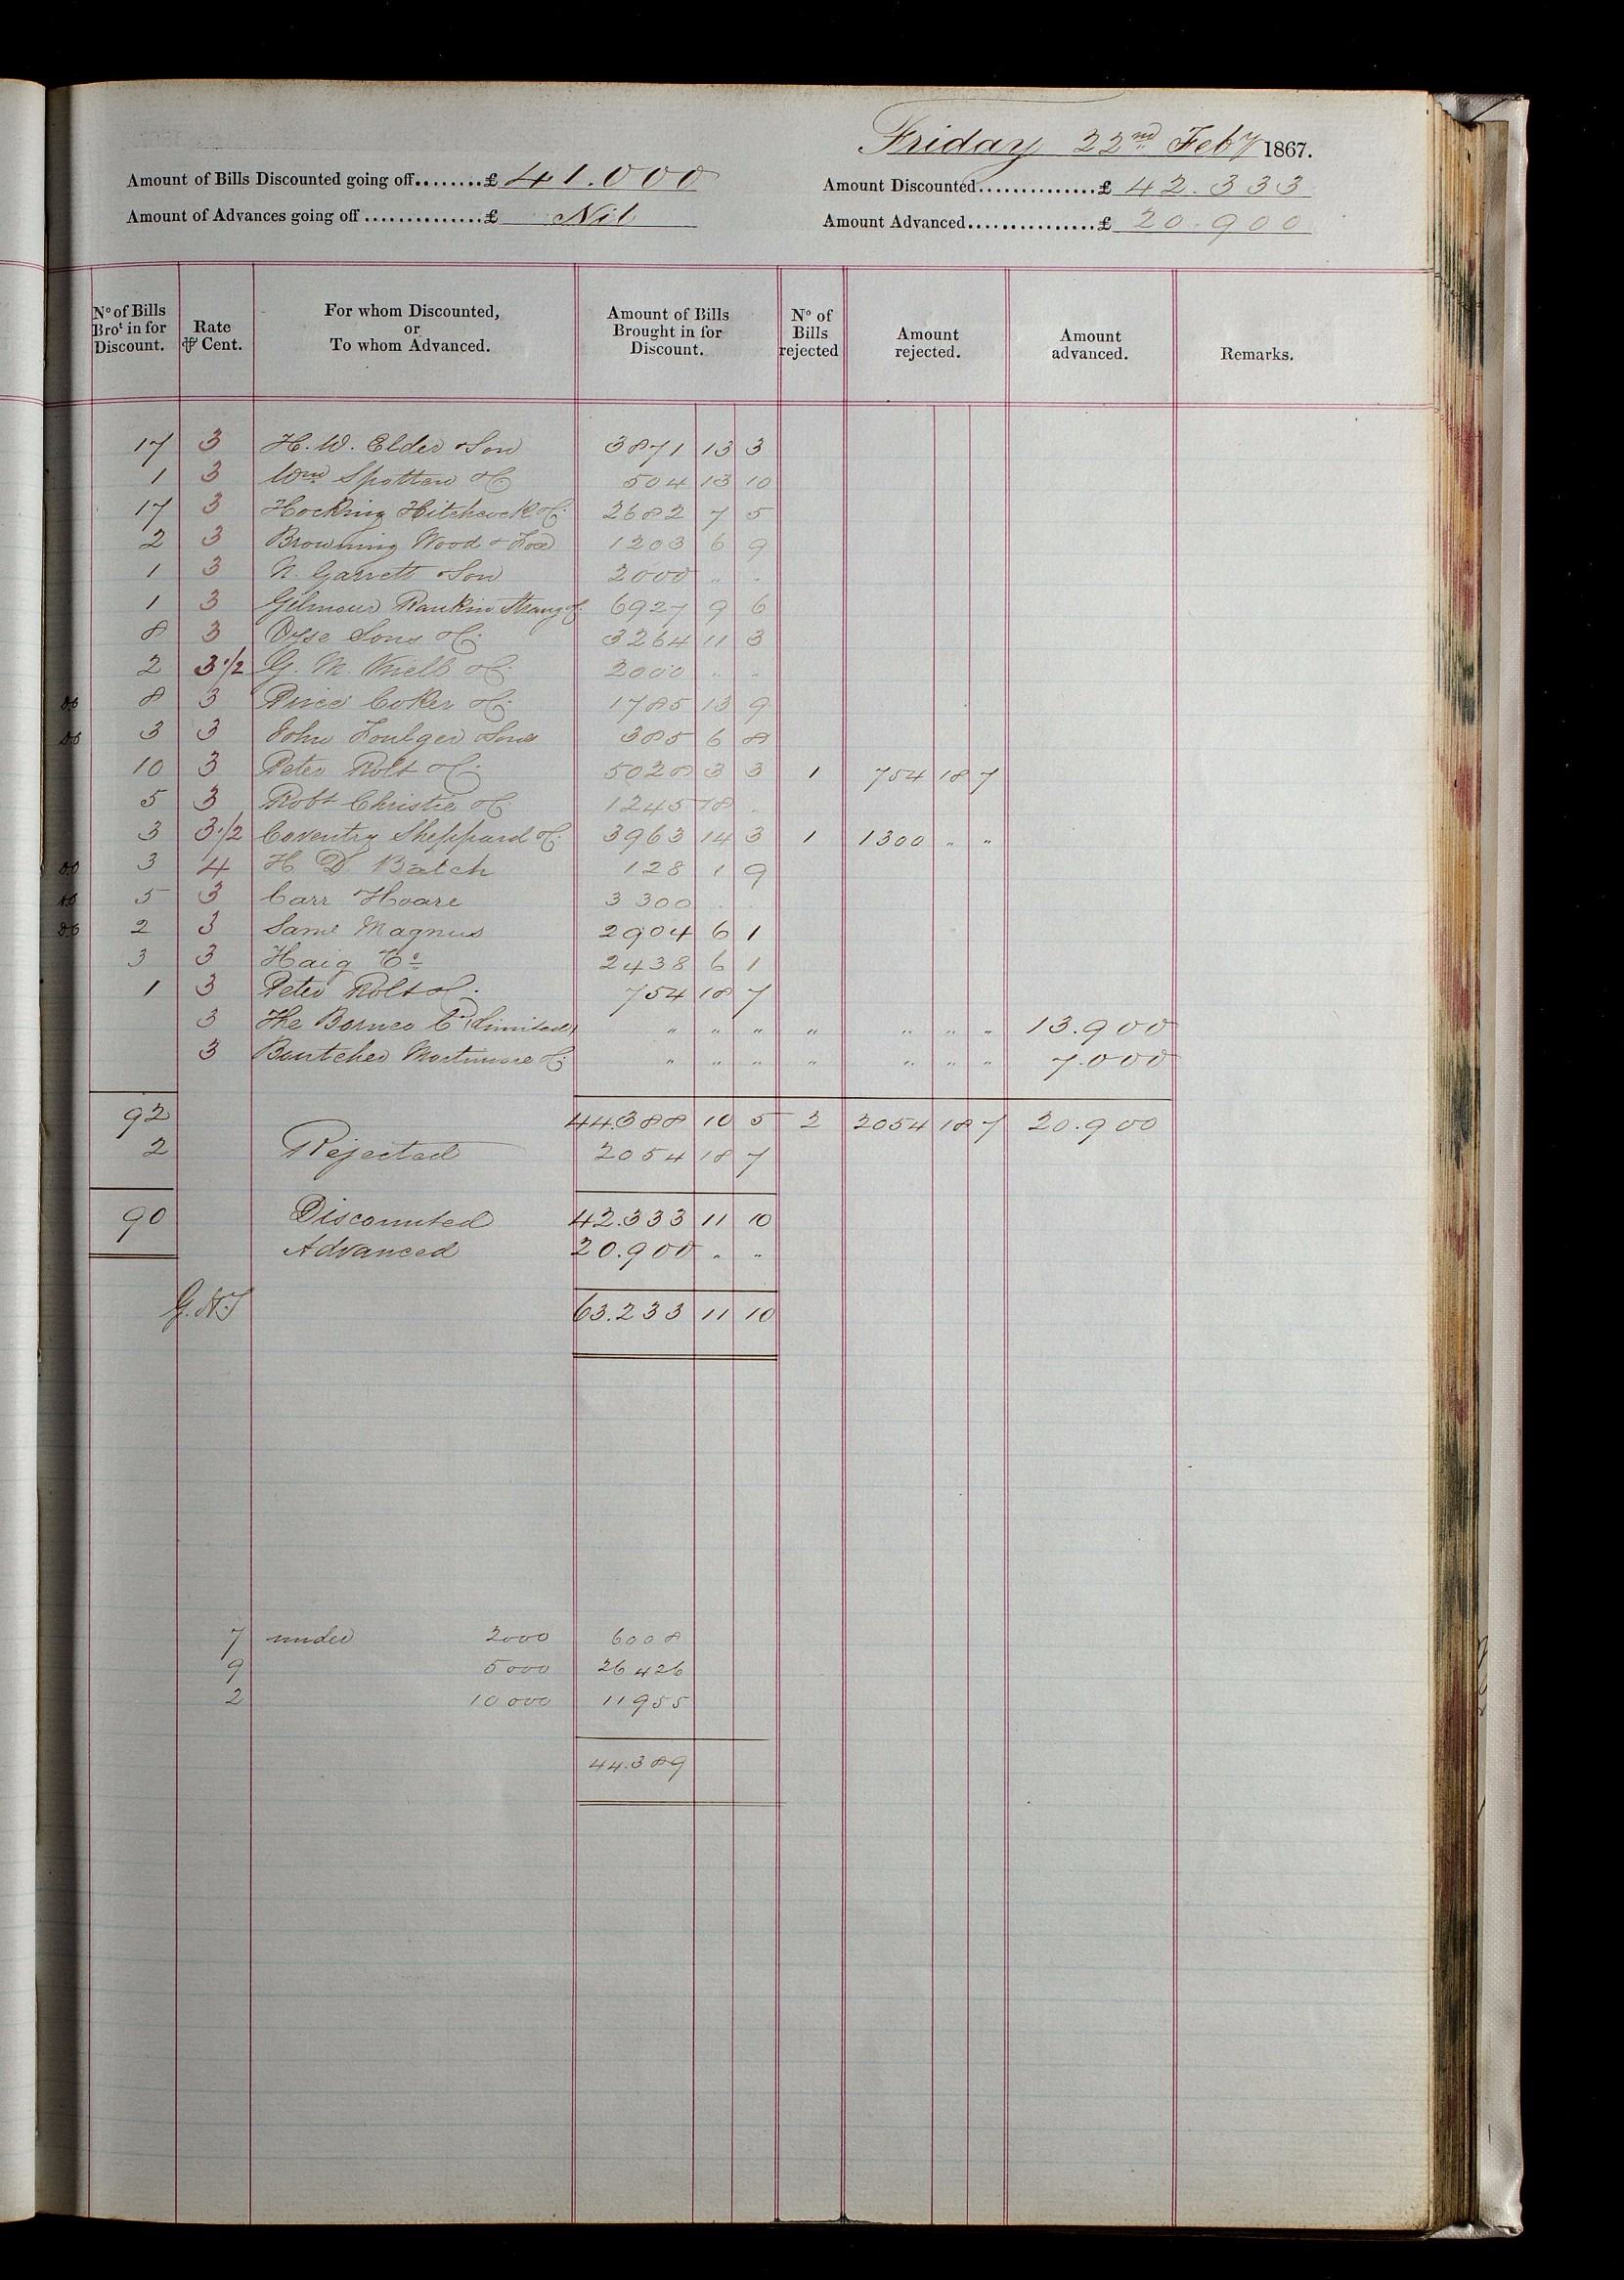 Friday 22nd Feby 1867.
Amount of Bills Discounted going off........£ 41.000 Amount Discounted..............£ 42.333
Amount of Advances going off..............£ Nil Amount Advanced...............£ 20.900
No of Bills Brot in for Discount. Rate ⅌ Cent. For whom Discounted, or To whom Advanced. Amount of Bills Brought in for Discount. No of Bills rejected Amount rejected. Amount advanced. Remarks.
17 3 H. W. Elder & Son 3871 13 3
1 3 Wm Spotten & Co 504 13 10
17 3 Hocking Hitchcock & Co 2682 7 5
2 3 Browning Wood & Fox 1203 6 9
1 3 N. Garrett & Son 2000 " "
1 3 Gilmour Rankin Strang & Co 6927 9 6
8 3 Dyse Sons & Co 3264 11 3
2 3 1/2 G. M. & Co 2000 " "
do 8 3 Price Coker & Co 1785 13 9
do 3 3 John Foulger & Sons 385 6 8
10 3 Peter Rolt & Co 5028 3 3 1 754 18 7
5 3 Robt Christie & Co 1245 18 "
3 3 1/2 Coventry Sheppard & Co 3963 14 3 1 1300 " "
do 3 4 H D Batch 128 1 9
do 5 3 Carr Hoare 3300 " "
do 2 3 Saml Magnus 2904 6 1
3 3 Haig & Co 2438 6 1
1 3 Peter Rolt & Co 754 18 7
3 The Borneo Co (Limited) " " " " " " " 13.900
3 Boutcher Mortimore & Co " " " " " " " 7.000
92 44.388 10 5 2 2054 18 7 20.900
2 Rejected 2054 18 7
90 Discounted 42.333 11 10
Advanced 20.900 " "
63.233 11 10
7 under 2000 6008
9 5000 26426
2 10000 11955
44.389